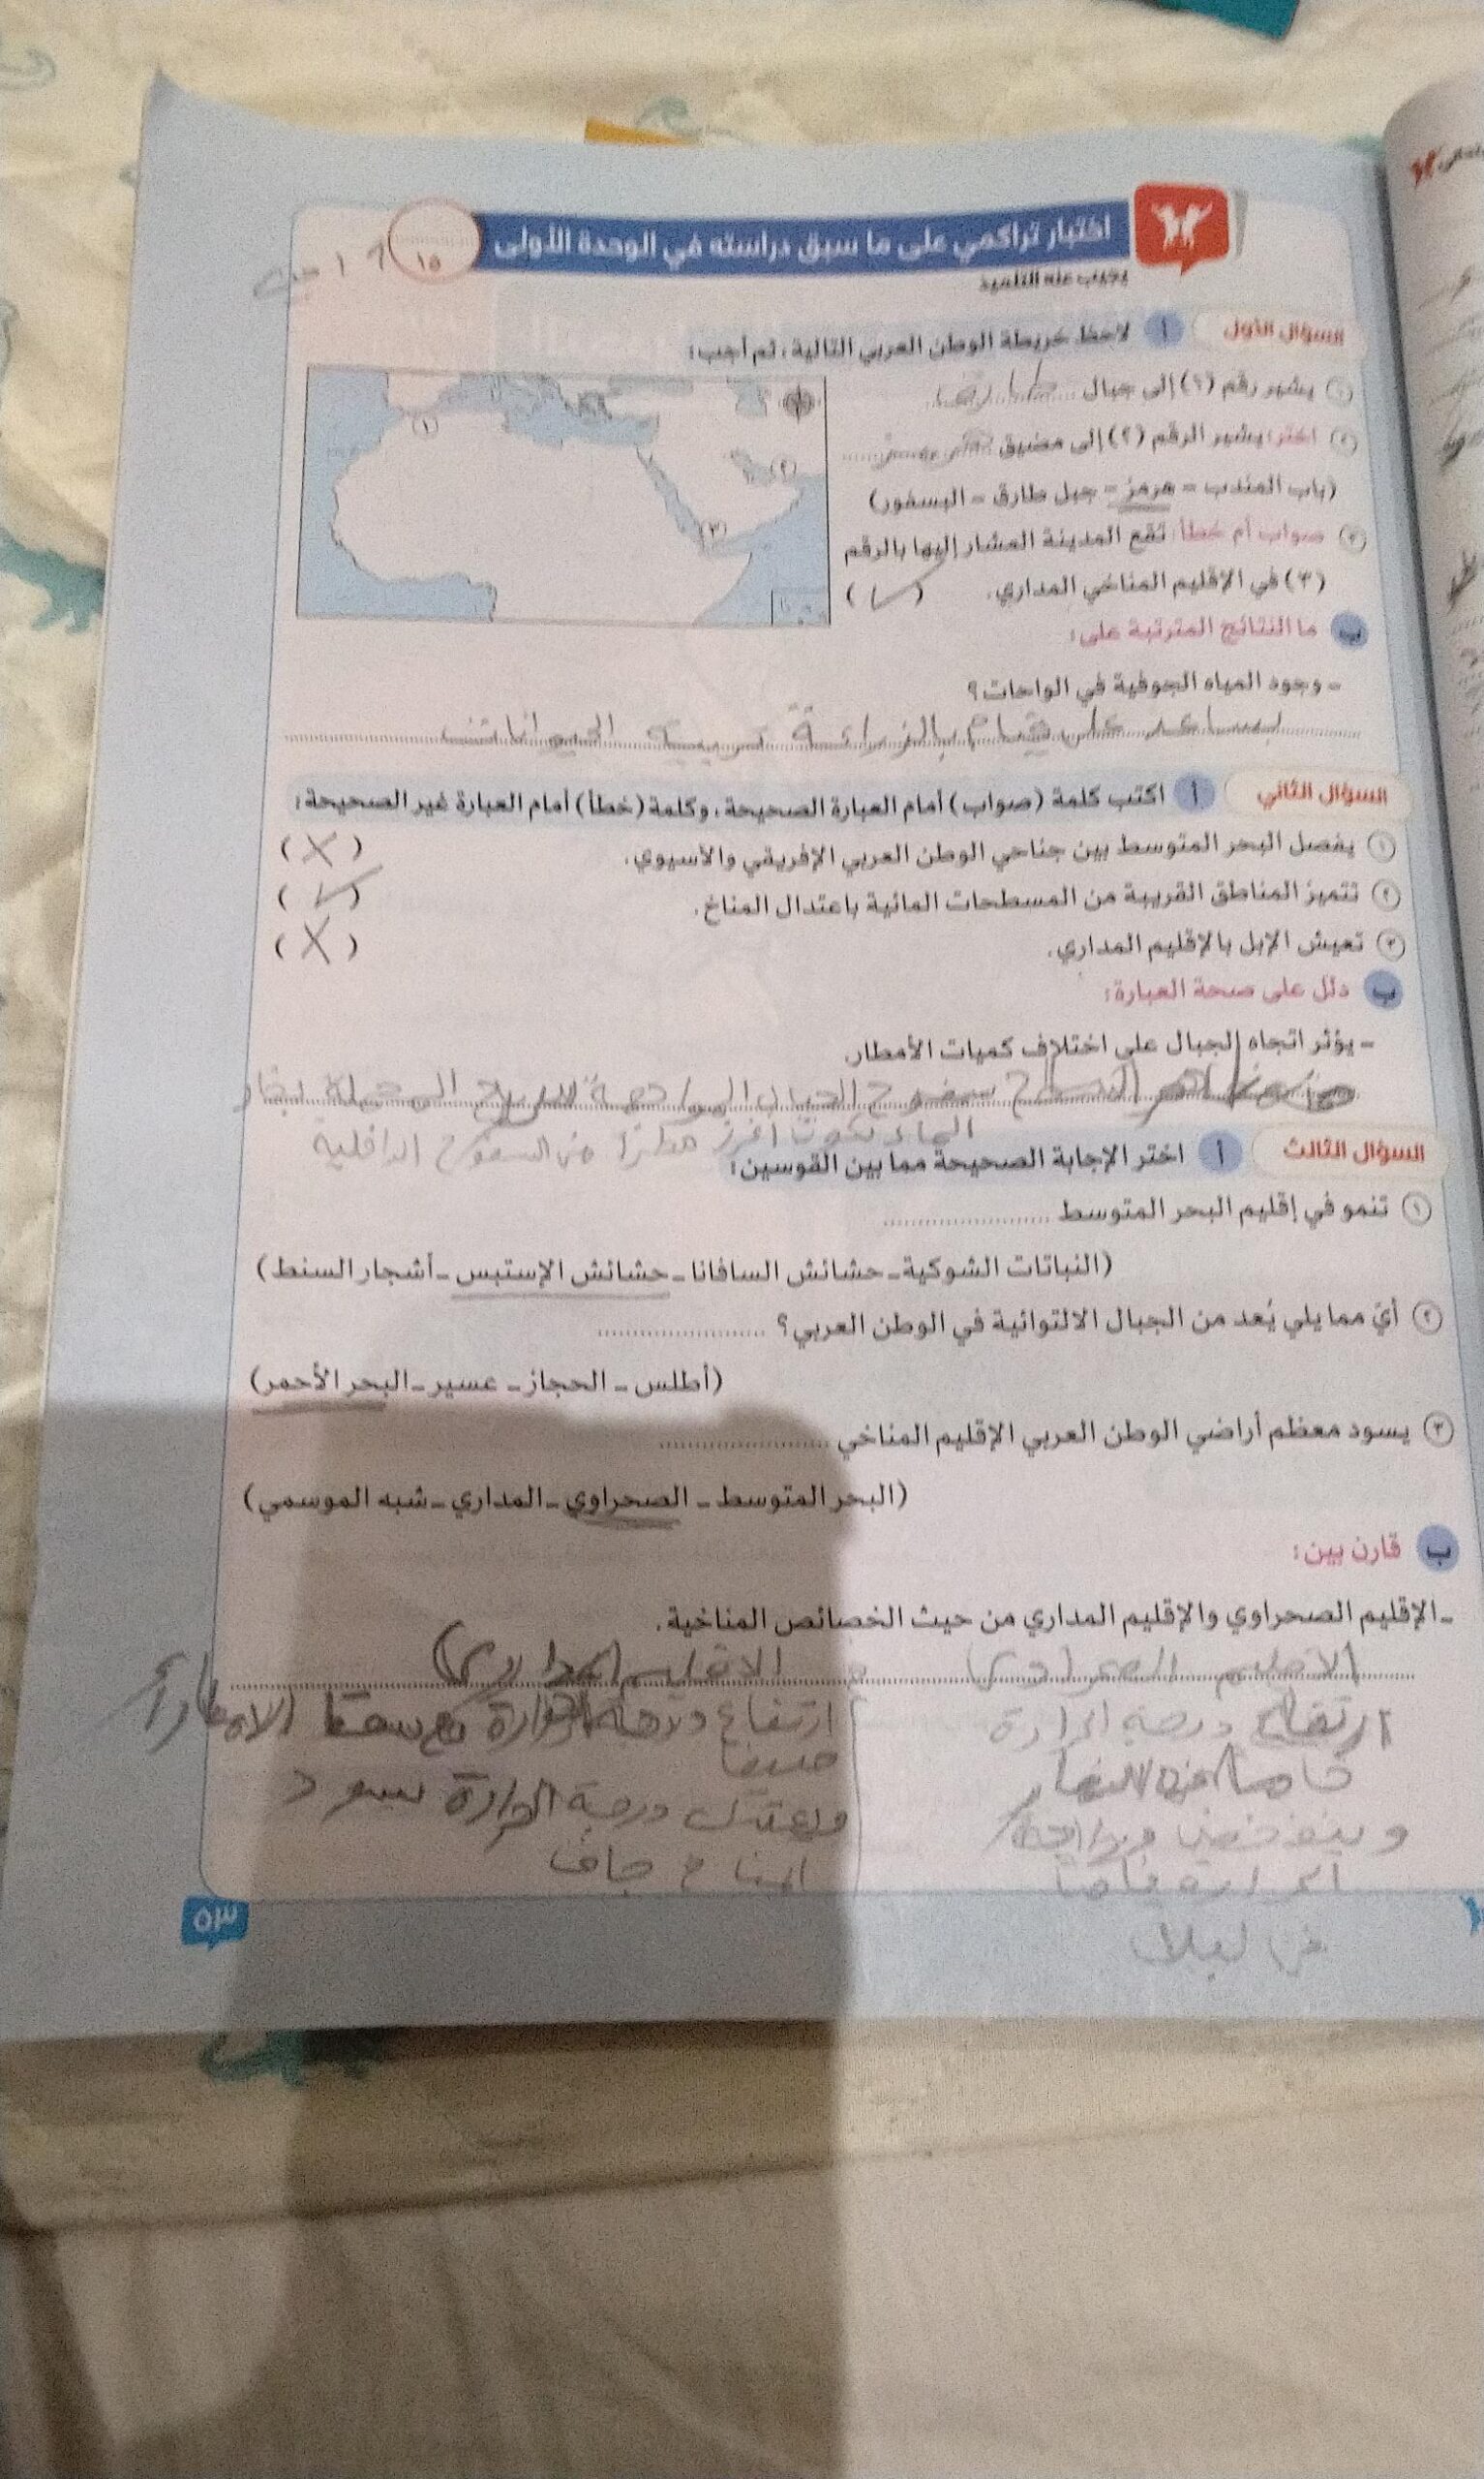 اختبار تراكمي على ما سبق دراسته في الوحدة الأولى
١٥
يجيب عنه التلميذ
السؤال الأول أ لاحظ خريطة الوطن العربي التالية، ثم أجب:
١ يشير رقم (١) إلى جبال
٢ اختر: يشير الرقم (٢) إلى مضيق هرمز
(باب المندب - هرمز - جبل طارق - البسفور)
٣ صواب أم خطأ: تقع المدينة المشار إليها بالرقم
(٣) في الإقليم المناخي المداري. (✓)
(١)
(٢)
(٣)
ب ما النتائج المترتبة على:
- وجود المياه الجوفية في الواحات؟
يساعد على قيام بالزراعة تربية الحيوانات
السؤال الثاني أ اكتب كلمة (صواب) أمام العبارة الصحيحة، وكلمة (خطأ) أمام العبارة غير الصحيحة:
١ يفصل البحر المتوسط بين جناحي الوطن العربي الإفريقي والآسيوي. (X)
٢ تتميز المناطق القريبة من المسطحات المائية باعتدال المناخ. (✓)
٣ تعيش الإبل بالإقليم المداري. (X)
ب دلل على صحة العبارة:
- يؤثر اتجاه الجبال على اختلاف كميات الأمطار.
سفوح الجبال المواجهة للرياح المحملة بخار
الماء تكون اغزر مطرا من السفوح الداخلية
السؤال الثالث أ اختر الإجابة الصحيحة مما بين القوسين:
١ تنمو في إقليم البحر المتوسط
(النباتات الشوكية - حشائش السافانا - حشائش الإستبس - أشجار السنط)
٢ أيّ مما يلي يُعد من الجبال الالتوائية في الوطن العربي؟
(أطلس - الحجاز - عسير - البحر الأحمر)
٣ يسود معظم أراضي الوطن العربي الإقليم المناخي
(البحر المتوسط - الصحراوي - المداري - شبه الموسمي)
ب قارن بين:
- الإقليم الصحراوي والإقليم المداري من حيث الخصائص المناخية.
الاقليم الصحراوى
ارتفاع درجة الحرارة
الحرارة
ليلا
الاقليم المدارى
ارتفاع درجة الحرارة مع سقوط الامطار
صيفا
درجة الحرارة يسود
المناخ جاف
٥٣